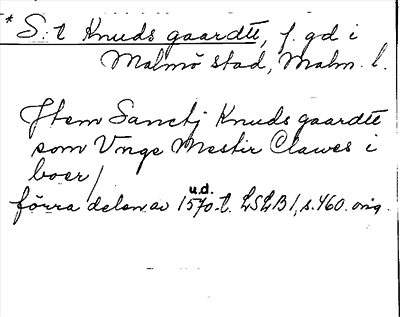 * S:t Knuds gaardtt, f. gd i
Malmö stad, Malm. l.
Jtem Sanctj Knuds gaardtt
som Vnge Mestir Clawes i
boer /
u.d.
förra delen av 1570-t. LSLB1, s. 460. orig.